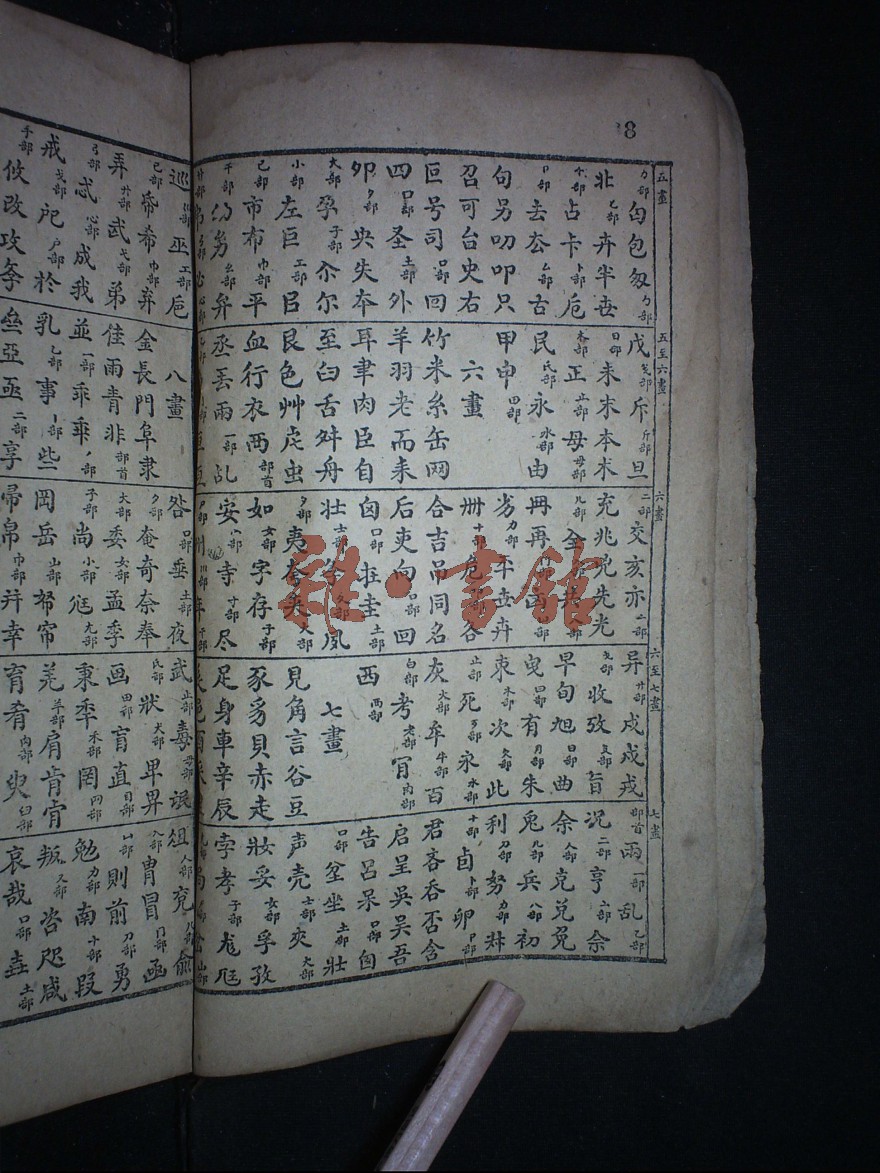 8
五畫
勹部 匂包匆 勹部
北 匕部 卉半卋
十部 占卡卮 卜部
卩部 去厺 厶部 古
句另叨叩只
召可台史右
叵号司 口部 回
四 囗部 圣 土部 外
夘 夕部 央失夲
大部 孕 子部 尒尔
小部 左巨 工部 㠯
己部 市布 巾部 平
干部 幼 幺部 弁
廾部 弓部 必 心部
五至六畫
戊 戈部 斥 斤部 旦
日部 未末本朮
木部 正 止部 母 毋部
民 氏部 永 水部 由
甲申 田部
六畫
竹米糸缶网
羊羽老而耒
耳聿肉臣自
至臼舌舛舟
艮色艸虍虫
血行衣襾 部首
丞丟両 一部 乩
六畫
二部 交亥亦 亠部
充兆兇先光
儿部 全共 八部
冉再 凾
劣 力部 卋卉
卌 十部 危 各
合吉吊同名
后吏向 口部 回
囪 囗部 圭 土部
壮 士部 夅 夂部 夙
夕部 夷夸夹 大部
如 女部 字存 子部
安 宀部 寺 寸部 尽
尸部 州 巛部 年 干部
六至七畫
异 廾部 戍戌戎
戈部 收攷 攴部 旨
早旬旭 日部 曲
曳 曰部 有 月部 朱
朿 木部 次 欠部 此
止部 死 歹部 永 水部
灰 火部 牟 牛部 百
白部 考 老部 肎 肉部
西 襾部
七畫
見角言谷豆
豕豸貝赤走
足身車辛辰
七畫
部首 両 一部 乱 乙部
况 二部 亨 亠部 佘
余 人部 克兌免
兎 儿部 兵 八部 初
利 刀部 努 力部
十部 卣 卜部 卵 卩部
君吝吞否含
启呈吳吴吾
告呂呆 口部 囪
囗部 坌坐 土部 壯
声壳 士部 夾 大部
妝妥 女部 孚孜
孛孝 子部 尨尪
巡 巛部 巫 工部 巵
己部 希 巾部 弃
弄 廾部 武 弋部 弟
弓部 忒 心部 成我
戒 戈部 戺 戶部 於
手部 攸改攻孝
八畫
金長門阜隶
隹雨青非 部首
並 一部 乖乘 丿部
乳 乙部 事 亅部 些
亞亟 二部 享
咎 口部 垂 土部 夜
夕部 奄奇奈奉
大部 委 女部 孟季
子部 尚 小部 尪 尢部
岡岳 山部 帑帘
帚帛 巾部 幷幸
武 止部 毒 毋部 氓
氏部 狀 犬部 畀畁
画 田部 盲直 目部
秉季 禾部 罔 网部
羌 羊部 肩肯肻
育肴 肉部 臾 臼部
俎 人部 兗 儿部 俞
入部 冑冒 冂部 函
凵部 則前 刀部 勇
勉 力部 南 十部 叚
叛 又部 咨咫咸
哀哉 口部 垚 土部
雅·書館